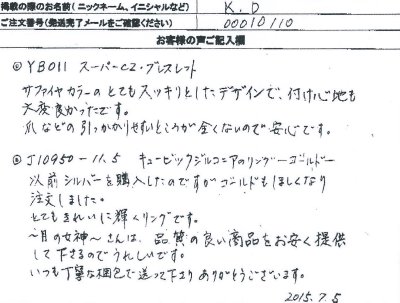 掲載の際のお名前(ニックネーム、イニシャルなど) K.D
ご注文番号(発送完了メールをご確認ください) 00010110
お客様の声ご記入欄
◎YB011 スーパーCZ・ブレスレット
サファイヤカラーのとてもスッキリとしたデザインで、付け心地も
大変良かったです。
爪などの引っかかりやすいところが全くないので安心です。
◎J10950-11.5 キュービックジルコニアのリングーゴールドー
以前シルバーを購入したのですがゴールドもほしくなり
注文しました。
とてもきれいに輝くリングです。
~月の女神~さんは、品質の良い商品をお安く提供
して下さるのでうれしいです。
いつも丁寧な梱包で送って下さりありがとうございます。
2015.7.5